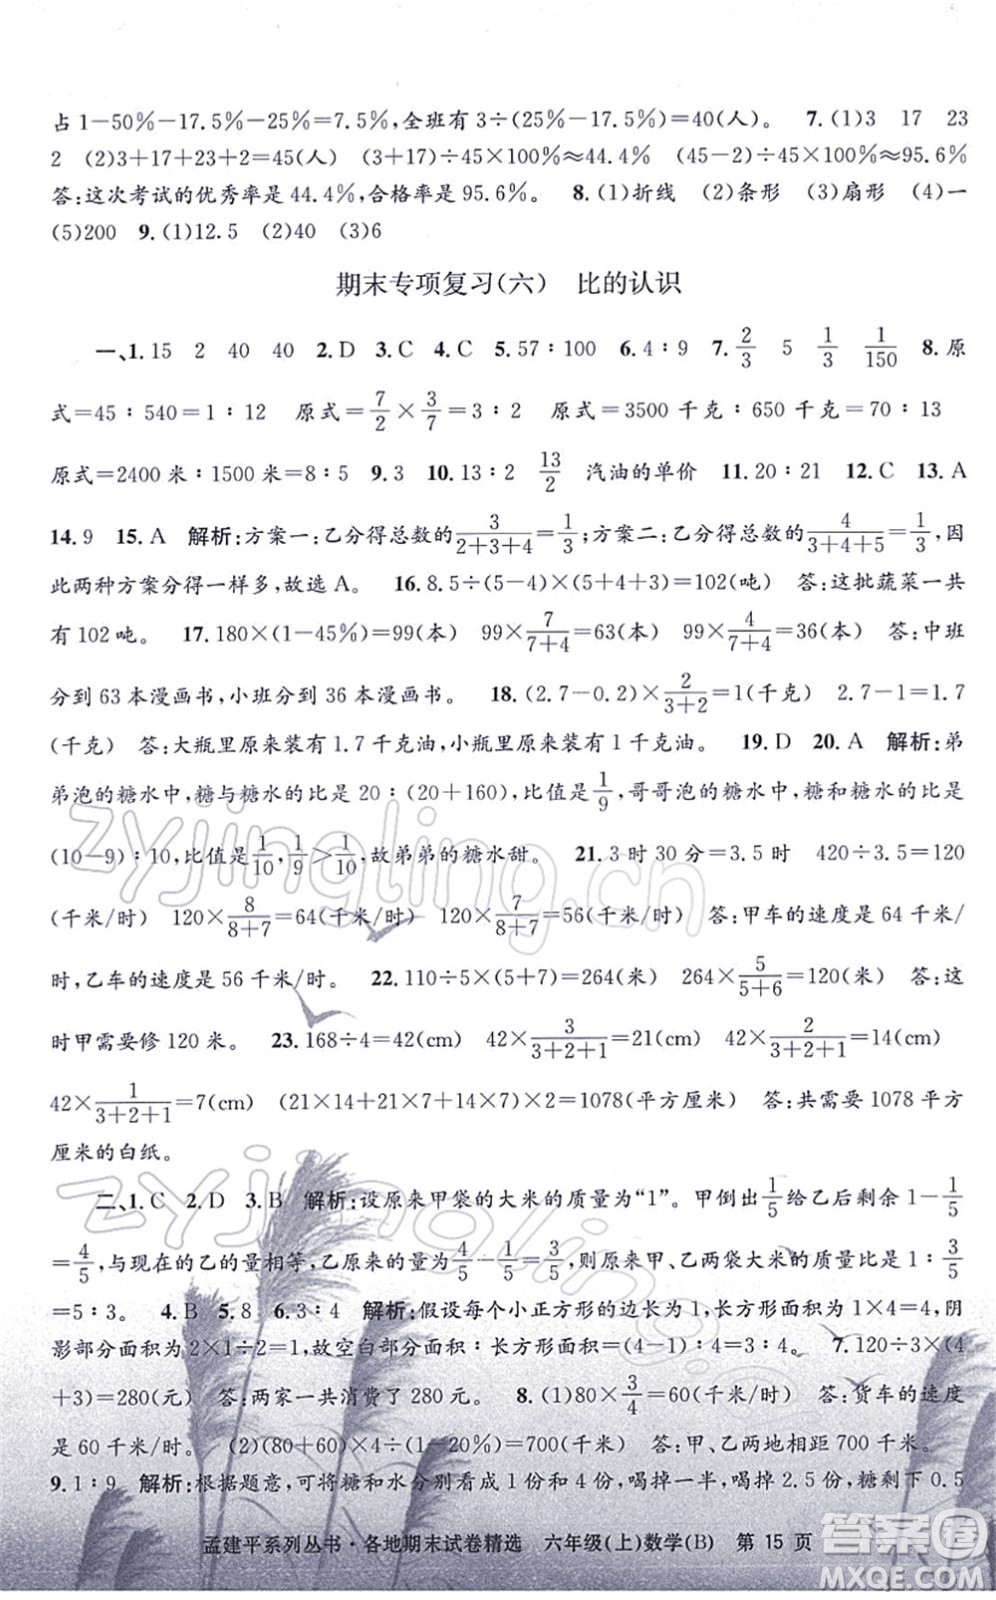 占1-50%-17.5%-25%=7.5%,全班有3÷(25%-17.5%)=40(人)。 7.(1)3 17 23
2 (2)3+17+23+2=45(人) (3+17)÷45×100%≈44.4% (45-2)÷45×100%≈95.6%
答:这次考试的优秀率是44.4%,合格率是95.6%。 8.(1)折线 (2)条形 (3)扇形 (4)一
(5)200 9.(1)12.5 (2)40 (3)6
期末专项复习(六) 比的认识
一、1.15 2 40 40 2.D 3.C 4.C 5.57∶100 6.4∶9 7.2/3 5 1/3 1/150 8.原
式=45∶540=1∶12 原式=7/2×3/7=3∶2 原式=3500千克∶650千克=70∶13
原式=2400米∶1500米=8∶5 9.3 10.13∶2 13/2 汽油的单价 11.20∶21 12.C 13.A
14.9 15.A 解析:方案一:乙分得总数的3/(2+3+4)=1/3;方案二:乙分得总数的4/(3+4+5)=1/3,因
此两种方案分得一样多,故选A。 16.8.5÷(5-4)×(5+4+3)=102(吨) 答:这批蔬菜一共
有102吨。 17.180×(1-45%)=99(本) 99×7/(7+4)=63(本) 99×4/(7+4)=36(本) 答:中班
分到63本漫画书,小班分到36本漫画书。 18.(2.7-0.2)×2/(3+2)=1(千克) 2.7-1=1.7
(千克) 答:大瓶里原来装有1.7千克油,小瓶里原来装有1千克油。 19.D 20.A 解析:弟
弟泡的糖水中,糖与糖水的比是20∶(20+160),比值是1/9,哥哥泡的糖水中,糖和糖水的比是
(10-9)∶10,比值是1/10,1/9>1/10,故弟弟的糖水甜。 21.3时30分=3.5时 420÷3.5=120
(千米/时) 120×8/(8+7)=64(千米/时) 120×7/(8+7)=56(千米/时) 答:甲车的速度是64千米/
时,乙车的速度是56千米/时。 22.110÷5×(5+7)=264(米) 264×5/(5+6)=120(米) 答:这
时甲需要修120米。 23.168÷4=42(cm) 42×3/(3+2+1)=21(cm) 42×2/(3+2+1)=14(cm)
42×1/(3+2+1)=7(cm) (21×14+21×7+14×7)×2=1078(平方厘米) 答:共需要1078平方
厘米的白纸。
二、1.C 2.D 3.B 解析:设原来甲袋的大米的质量为“1”。甲倒出1/5给乙后剩余1-1/5
=4/5,与现在的乙的重量相等,乙原来的重量为4/5-1/5=3/5,则原来甲、乙两袋大米的质量比是1∶3/5
=5∶3。 4.B 5.8 6.3∶4 解析:假设每个小正方形的边长为1,长方形面积为1×4=4,阴
影部分面积为2×1÷2=1,故空白部分面积∶长方形面积=(4-1)∶4=3∶4。 7.120÷3×(4
+3)=280(元) 答:两家一共消费了280元。 8.(1)80×3/4=60(千米/时) 答:货车的速度
是60千米/时。 (2)(80+60)×4÷(1-20%)=700(千米) 答:甲、乙两地相距700千米。
9.1∶9 解析:根据题意,可将糖和水分别看成1份和4份,喝掉一半,喝掉2.5份,糖剩下0.5
孟建平系列丛书·各地期末试卷精选 六年级(上)数学(B) 第15页
zyjingling.cn
zyjingling
答案圈
MXQE.COM